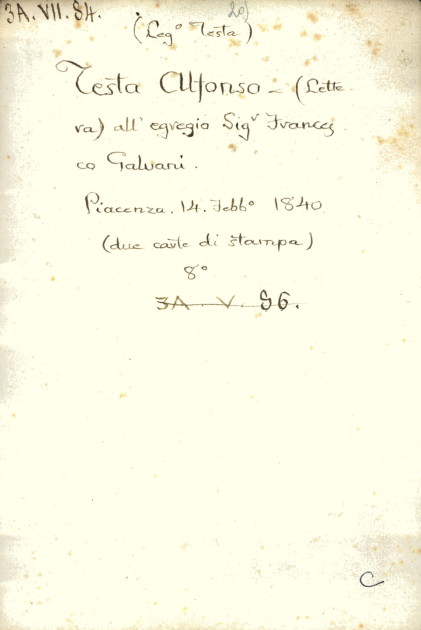 3A. VII. 84.
20)
(Leg° Testa)
Testa Alfonso - (Lette-
ra) all' egregio Sigr Frances
co Galvani.
Piacenza. 14. Febb° 1840
(due carte di stampa)
8°
3A. V. 86.
C